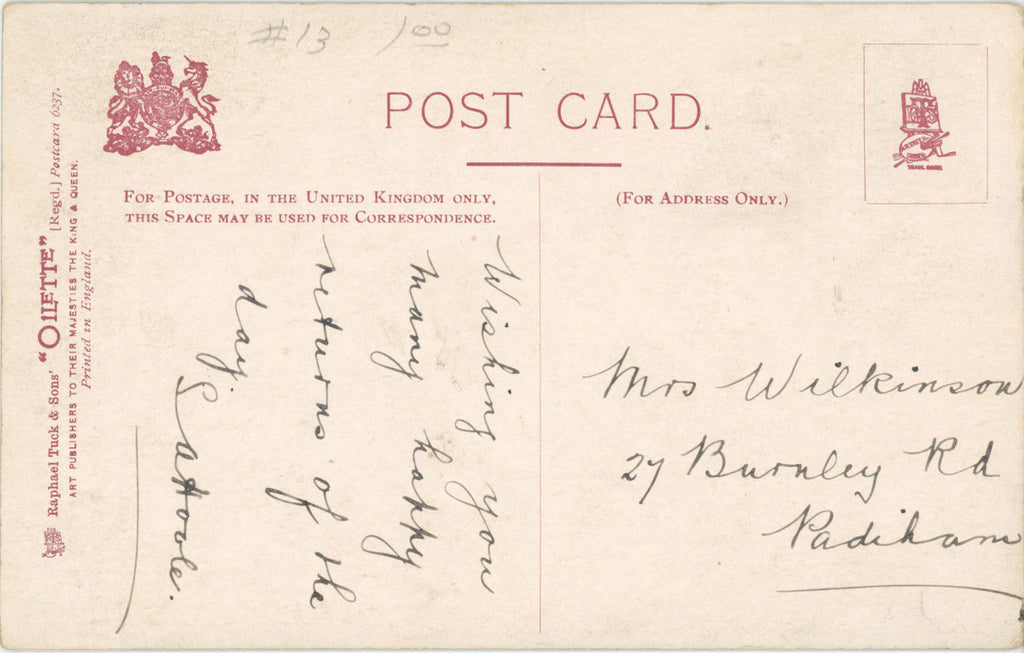 #13 1.00
POST CARD.
FOR POSTAGE, IN THE UNITED KINGDOM ONLY,
THIS SPACE MAY BE USED FOR CORRESPONDENCE.
(FOR ADDRESS ONLY.)
Raphael Tuck & Sons' "OILETTE" [Regd.] Postcard 6237.
ART PUBLISHERS TO THEIR MAJESTIES THE KING & QUEEN.
Printed in England.
Wishing you
many happy
returns of the
day.
Mrs Wilkinson
27 Burnley Rd
Padiham